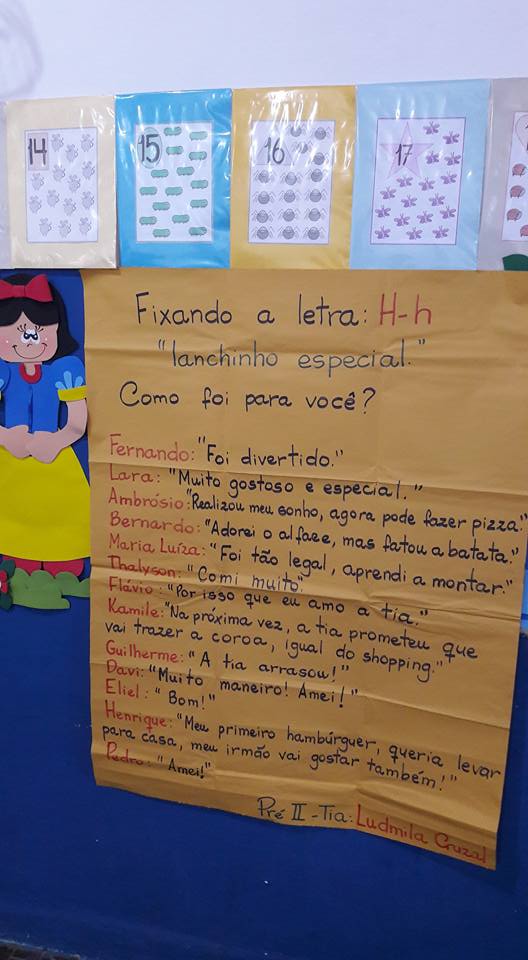 14
15
16
17
Fixando a letra: H-h
"lanchinho especial."
Como foi para você?
Fernando: "Foi divertido."
Lara: "Muito gostoso e especial."
Ambrósio: "Realizou meu sonho, agora pode fazer pizza."
Bernardo: "Adorei o alface, mas fatou a batata."
Maria Luíza: "Foi tão legal, aprendi a montar."
Thalyson: "Comi muito".
Flávio: "Por isso que eu amo a tia."
Kamile: "Na próxima vez, a tia prometeu que
vai trazer a coroa, igual do shopping."
Guilherme: "A tia arrasou!"
Davi: "Muito maneiro! Amei!"
Eliel: "Bom!"
Henrique: "Meu primeiro hambúrguer, queria levar
para casa, meu irmão vai gostar também!"
Pedro: "Amei!"
Pré II - Tia: Ludmila Cruzal